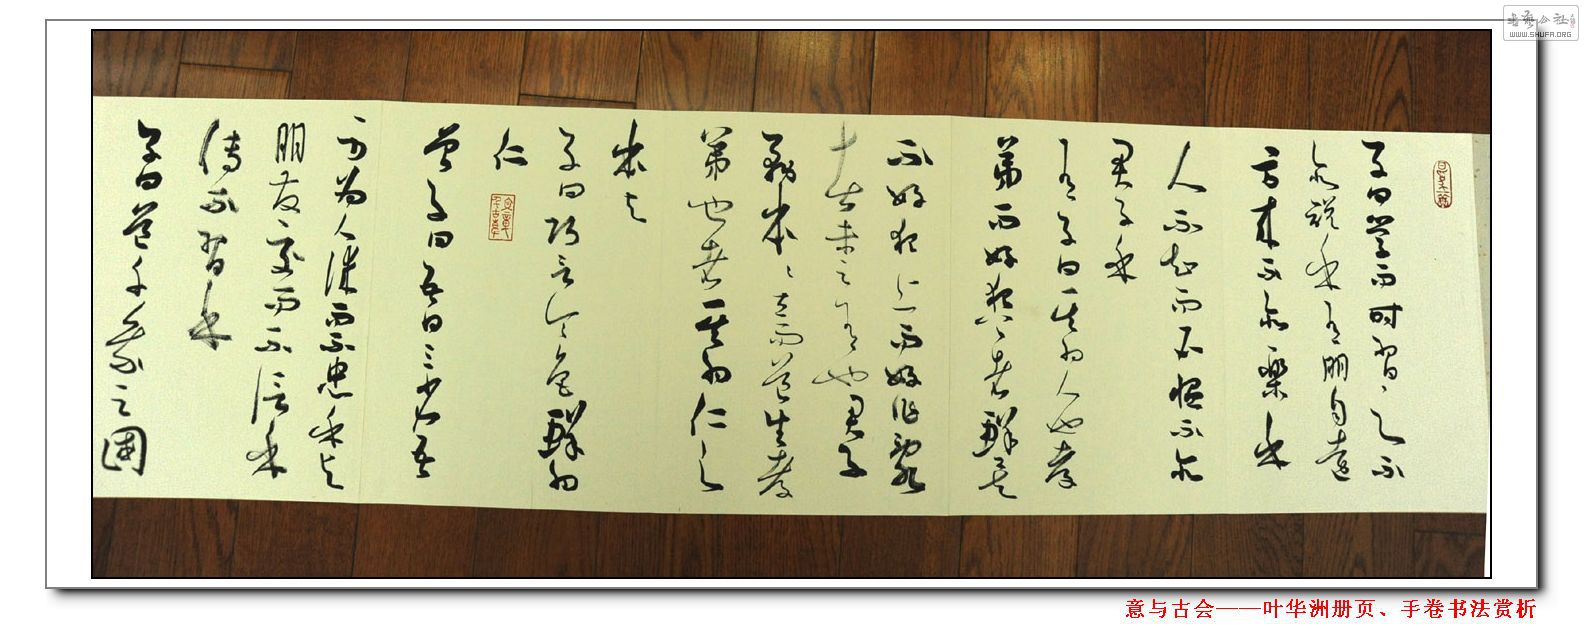 子曰學而時習之不
亦説乎有朋自遠
方来不亦樂乎
人不知而不愠不亦
君子乎
有子曰其为人也孝
弟而好犯上者鮮矣
不好犯上而好作亂
者未之有也君子
務本〻立而道生孝
弟也者其为仁之
本与
子曰巧言令色鮮矣
仁
曾子曰吾日三省吾
身为人謀而不忠乎与
朋友交而不信乎
傳不習乎
子曰道千乘之國
意与古会——叶华洲册页、手卷书法赏析
书艺公社
WWW.SHUFA.ORG